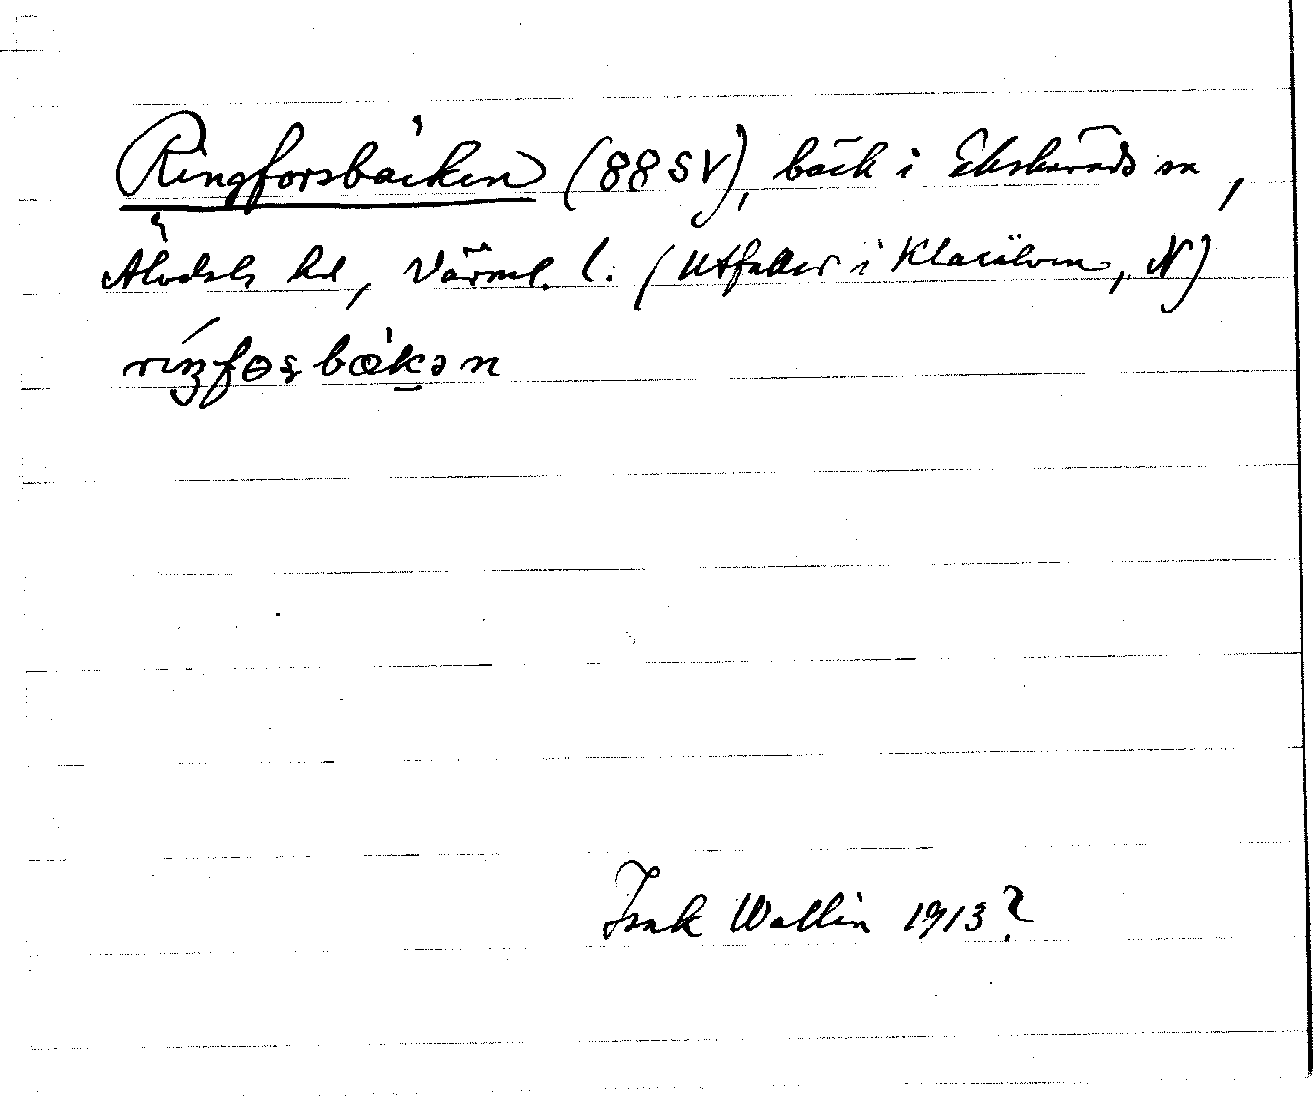 Ringforsbäcken (88 SV), bäck i Ekshärads sn,
Älvdals hd, Värml. l. (Utfaller i Klarälven, N)
ríŋfɵʂbækən
Isak Wallin 1913?